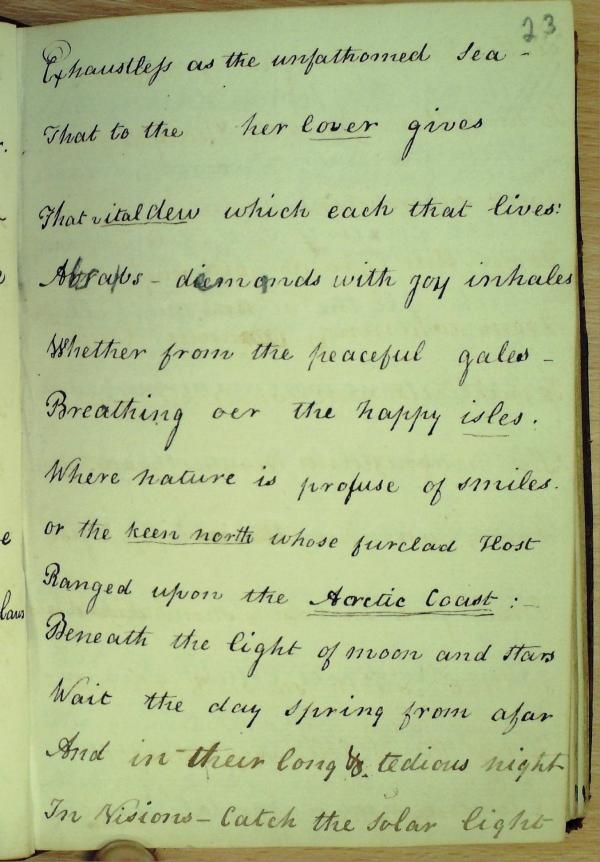 23
Exhaustless as the unfathomed sea -
That to the her lover gives
That vital dew which each that lives:
- diemonds with joy inhales
Whether from the peaceful gales -
Breathing oer the happy isles.
Where nature is profuse of smiles.
or the keen north whose furclad Host
Ranged upon the Arctic Coast :-
Beneath the light of moon and stars
Wait the day spring from afar
And in their long & tedious night
In Visions - Catch the Solar light
e
laws